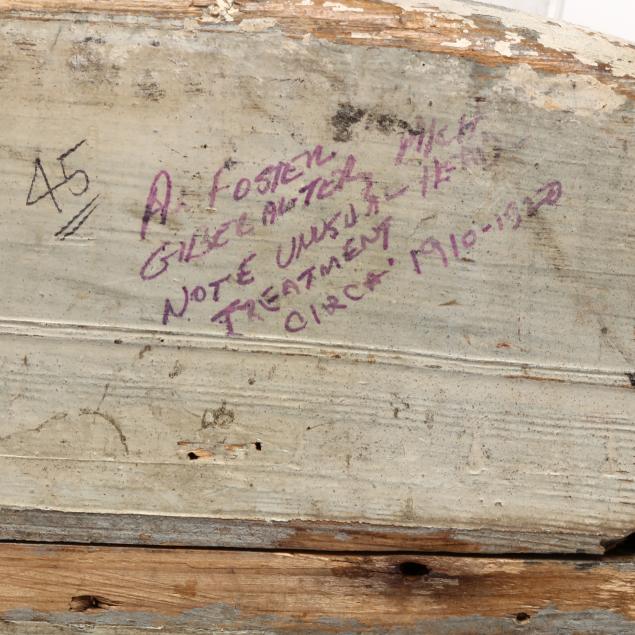 45
A. FOSTER
GILBERALTER, MICH
NOTE UNUSUAL HEAD
TREATMENT
CIRCA 1910-1920